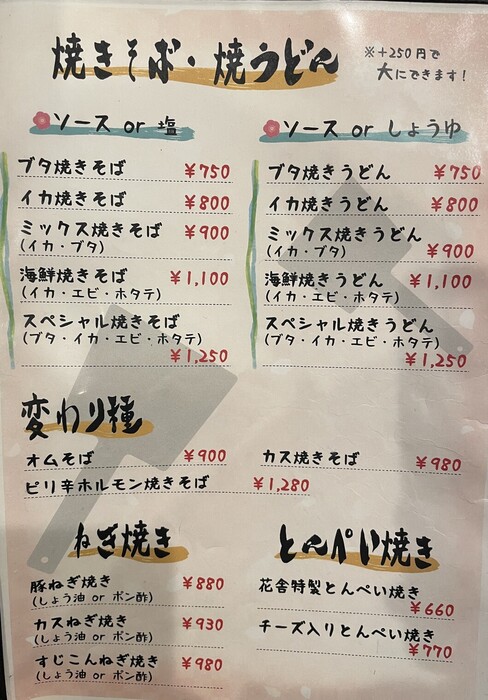 焼きそば・焼うどん
※+250円で
大にできます!
ソース or 塩
ブタ焼きそば ¥750
イカ焼きそば ¥800
ミックス焼きそば ¥900
(イカ・ブタ)
海鮮焼きそば ¥1,100
(イカ・エビ・ホタテ)
スペシャル焼きそば
(ブタ・イカ・エビ・ホタテ)
¥1,250
ソース or しょうゆ
ブタ焼きうどん ¥750
イカ焼きうどん ¥800
ミックス焼きうどん
(イカ・ブタ) ¥900
海鮮焼きうどん ¥1,100
(イカ・エビ・ホタテ)
スペシャル焼きうどん
(ブタ・イカ・エビ・ホタテ)
¥1,250
変わり種
オムそば ¥900
カス焼きそば ¥980
ピリ辛ホルモン焼きそば ¥1,280
ねぎ焼き
豚ねぎ焼き ¥880
(しょう油 or ポン酢)
カスねぎ焼き ¥930
(しょう油 or ポン酢)
すじこんねぎ焼き ¥980
(しょう油 or ポン酢)
とんぺい焼き
花舎特製とんぺい焼き
¥660
チーズ入りとんぺい焼き
¥770